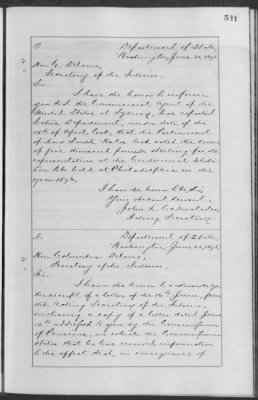 531
Department of State,
Washington, June 21, 1875.
Hon. C. Delano,
Secretary of the Interior.
Sir:
I have the honor to inform
you that the Commercial Agent of the
United States at Sydney, has reported
to this Department, under date of the
of April last, that the Parliament
of New South Wales had voted the sum
of five thousand pounds sterling for its
representation at the Centennial
to be held at Philadelphia in the
year 1876.
I have the honor to be, Sir,
Your obedient servant,
John L. Cadwalader,
Acting Secretary.
Department of State,
Washington, June 1875
Hon. Columbus Delano,
Secretary of the Interior.
Sir:
I have the honor to acknowledge
the receipt of a letter of the 18th June, from
the Acting Secretary of the Interior
enclosing a copy of a letter dated June
addressed to you by the Commissioner
of Pensions, in which the Commissioner
states that he has received information
to the effect that, in consequence of